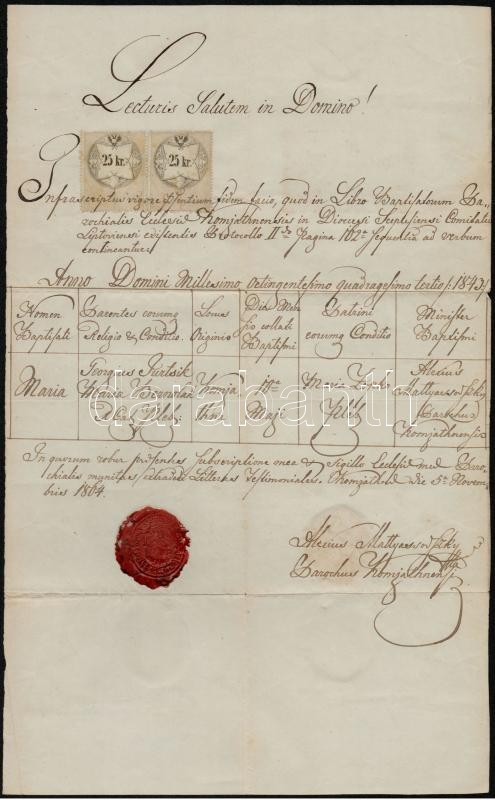 Lecturis Salutem in Domino!
25 kr. 25 kr.
Infrascriptus vigore praesentium fidem facio, quod in Libro Baptisatorum Pa-
rochialis Ecclesiae Komjathnensis in Dioecesi Scepusiensi Comitatu
Liptoviensi existentis Protocollo II do Pagina 162 a Sequentia ad verbum
contineantur:
Anno Domini Millesimo octingentesimo quadragesimo tertio /: 1843 :/
Nomen Parentes eorumq Locus Dies Men Patrini Minister
Baptisati Religio & Conditio. Originis sis collati eorumq Conditio Baptismi
Baptismi
Maria Georgius Maria Komja Maji Maria Alexius
R. Cath. Plebej thna Plebej Mattyasovszky
Parochus
Komjathnensis
In quorum robur praesentes Subscriptione mea & Sigillo Ecclesiae meae Paro
chialis munitas, extradedi Litteras Testimoniales. Komjathnae Die 5 a Novem-
bris 1864.
darabanth
Alexius Mattyasovszky
Parochus Komjathnensis